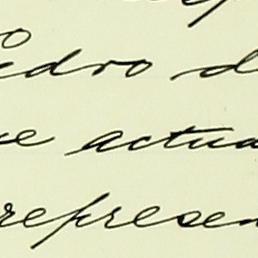 edro d
e actua
represen